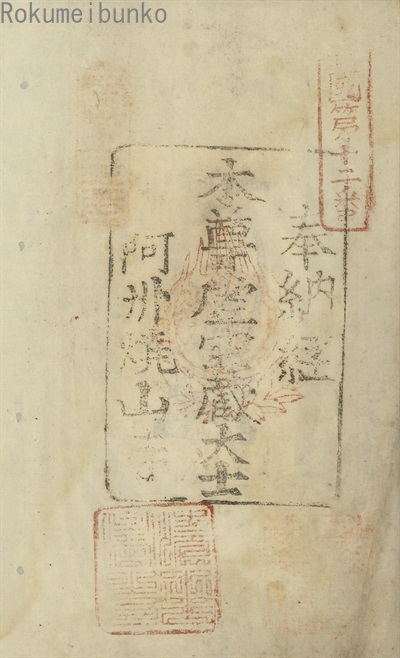 Rokumeibunko
國第十二番
奉納経
本尊虚空蔵大士
阿州焼山寺